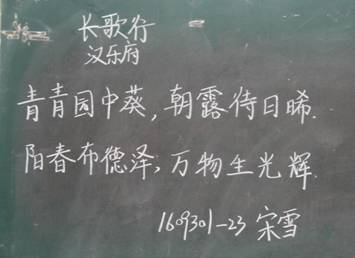 长歌行
汉乐府
青青园中葵,朝露待日晞.
阳春布德泽,万物生光辉.
1609301-23 宋雪